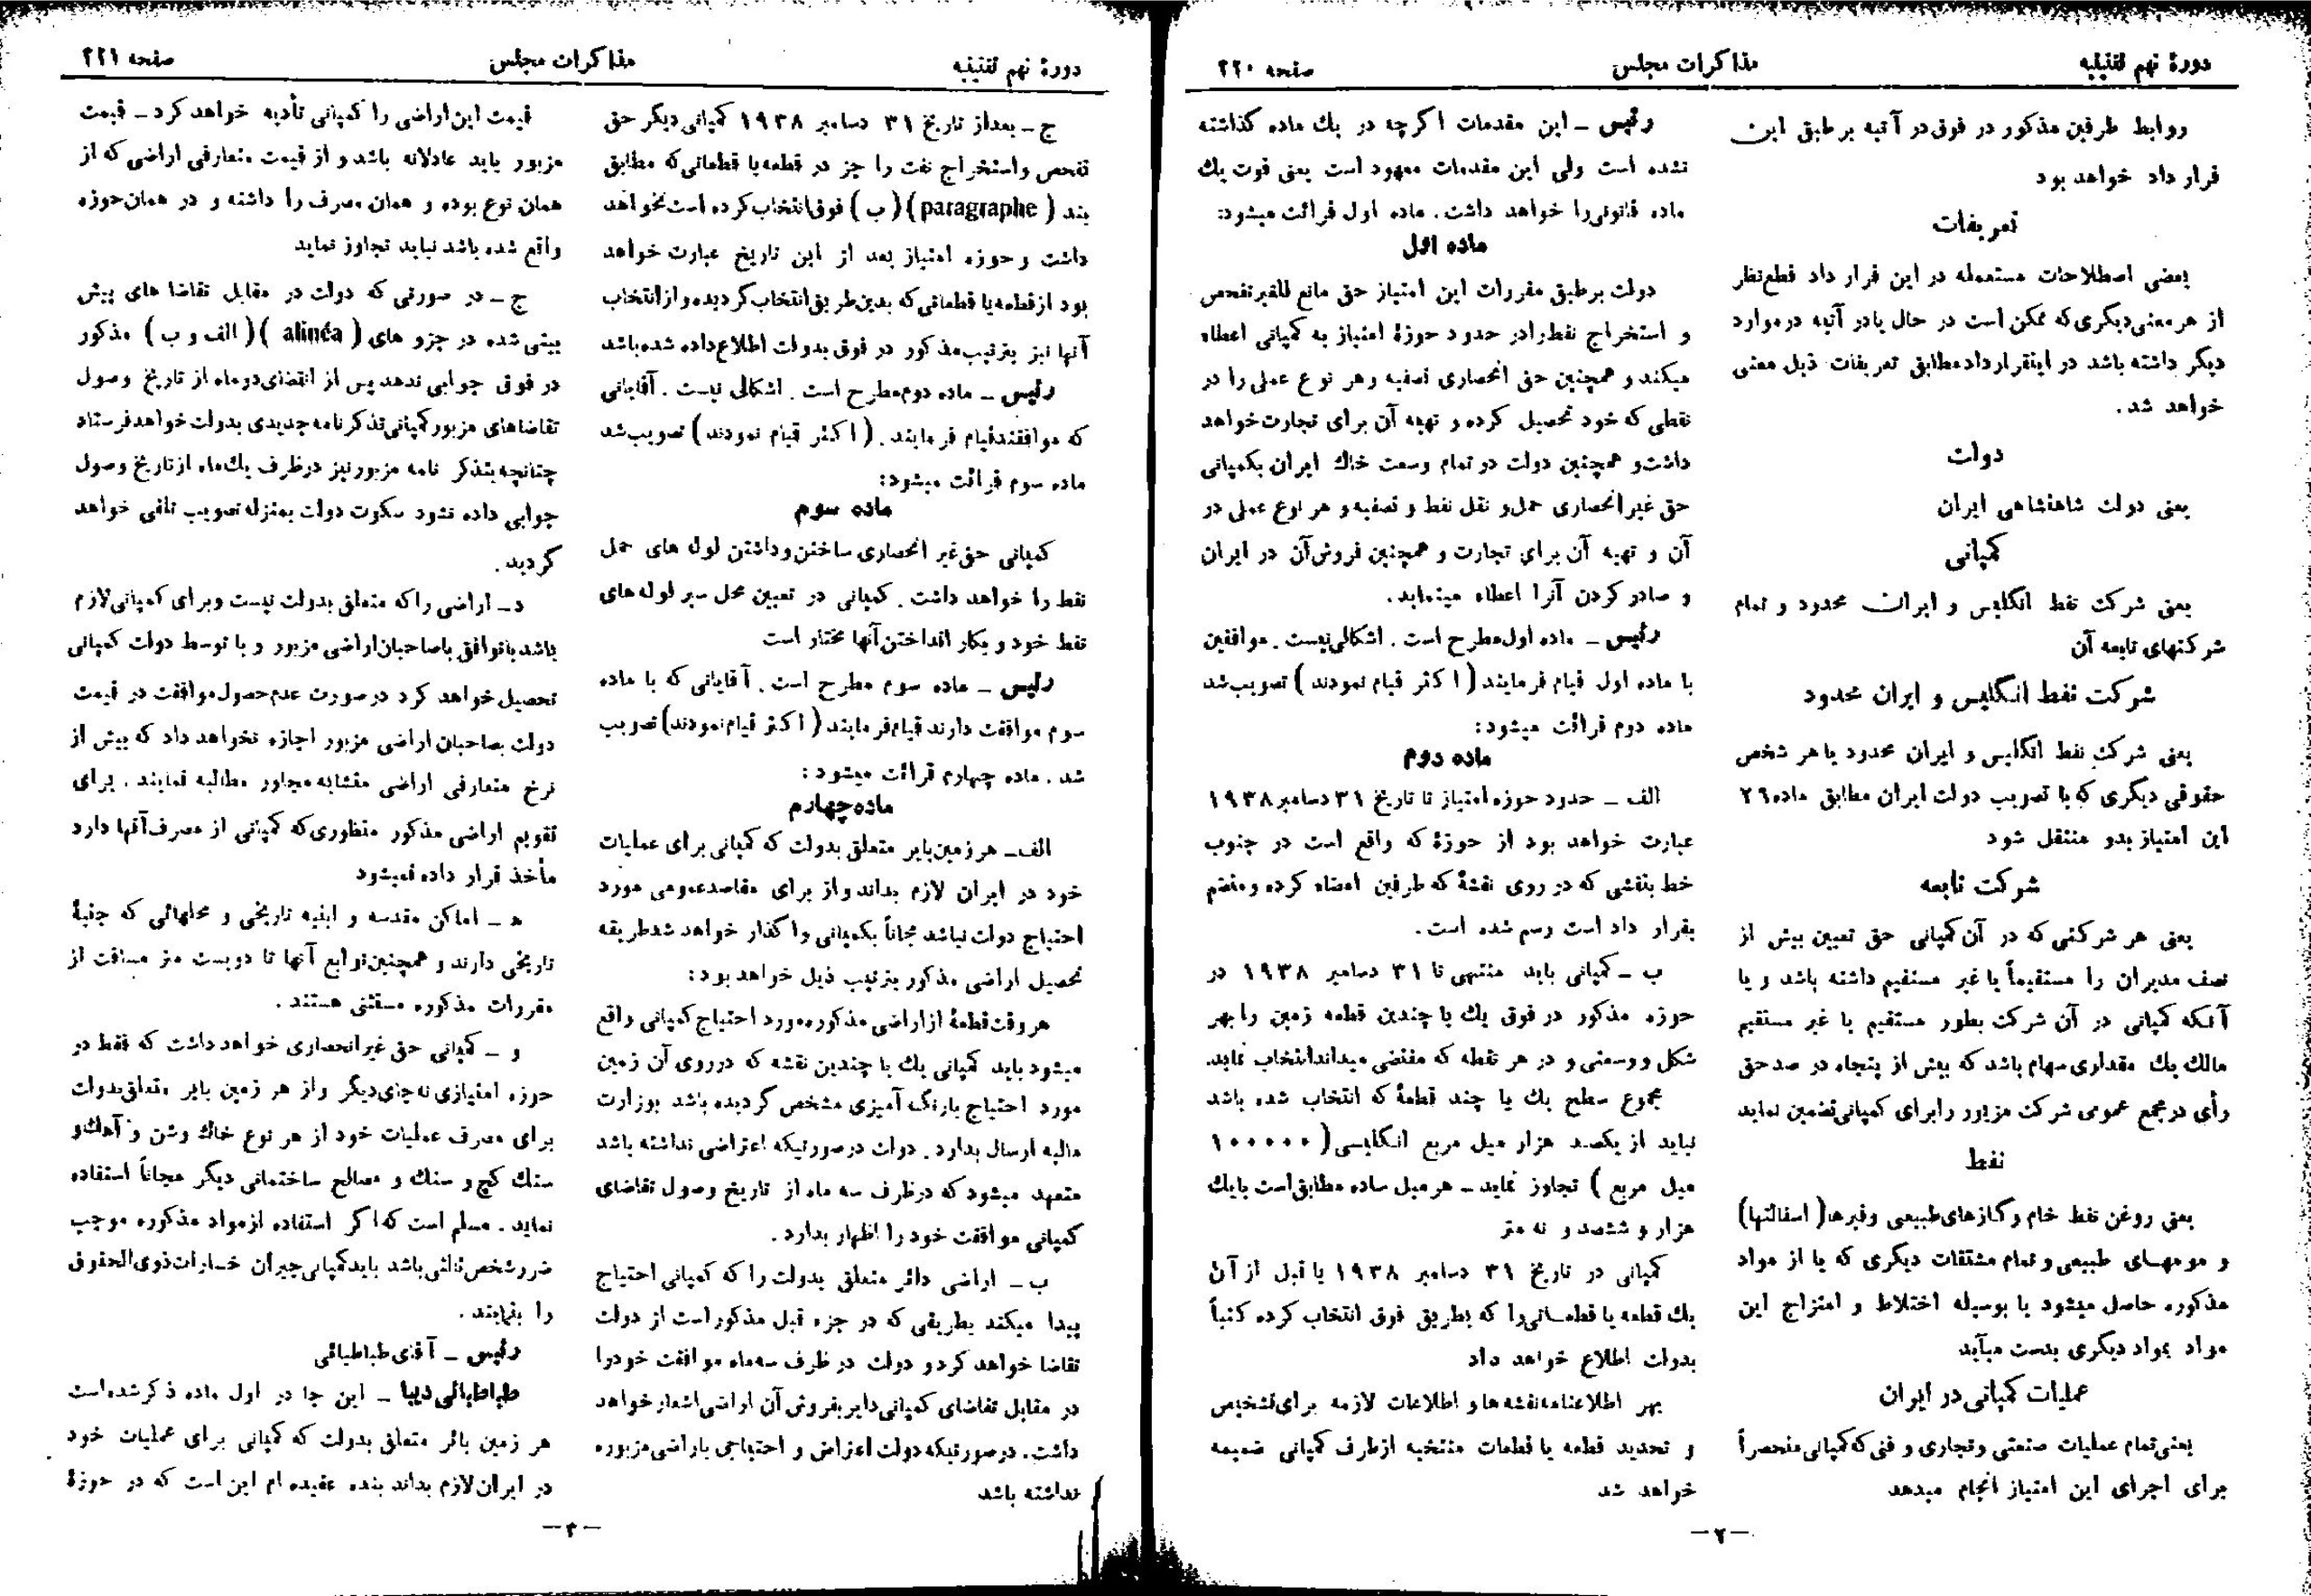 دورهٔ نهم تقنینیه
مذاکرات مجلس
صفحه ۲۲۰
روابط طرفین مذکور در فوق در آتیه بر طبق این
قرار داد خواهد بود
تعریفات
بعضی اصطلاحات مستعمله در این قرار داد قطع‌نظر
از هر معنی دیگری که ممکن است در حال یا در آتیه در موارد
دیگر داشته باشد در اینقرارداد مطابق تعریفات ذیل معنی
خواهد شد.
دولت
یعنی دولت شاهنشاهی ایران
کمپانی
یعنی شرکت نفط انگلیس و ایران محدود و تمام
شرکتهای تابعه آن
شرکت نفط انگلیس و ایران محدود
یعنی شرکت نفط انگلیس و ایران محدود یا هر شخص
حقوقی دیگری که با تصویب دولت ایران مطابق ماده ۲۶
این امتیاز بدو منتقل شود
شرکت تابعه
یعنی هر شرکتی که در آن کمپانی حق تعیین بیش از
نصف مدیران را مستقیماً یا غیر مستقیم داشته باشد و یا
آنکه کمپانی در آن شرکت بطور مستقیم یا غیر مستقیم
مالك یك مقداری سهام باشد که بیش از پنجاه در صد حق
رأی در مجمع عمومی شرکت مزبور را برای کمپانی تضمین نماید
نفط
یعنی روغن نفط خام و گازهای طبیعی و قیرها (اسفالتها)
و مومهای طبیعی و تمام مشتقات دیگری که یا از مواد
مذکوره حاصل میشود یا بوسیله اختلاط و امتزاج این
مواد بمواد دیگری بدست میآید
عملیات کمپانی در ایران
یعنی تمام عملیات صنعتی و تجاری و فنی که کمپانی منحصراً
برای اجرای این امتیاز انجام میدهد
رئیس ـ این مقدمات اگرچه در یك ماده گذاشته
نشده است ولی این مقدمات معهود است یعنی قوت یك
ماده قانونی را خواهد داشت. ماده اول قرائت میشود:
ماده اول
دولت بر طبق مقررات این امتیاز حق مانع للغیر تفحص
و استخراج نفط را در حدود حوزهٔ امتیاز به کمپانی اعطاء
میکند و همچنین حق انحصاری تصفیه و هر نوع عملی را در
نفطی که خود تحصیل کرده و تهیه آن برای تجارت خواهد
داشت و همچنین دولت در تمام وسعت خاك ایران بکمپانی
حق غیر انحصاری حمل و نقل نفط و تصفیه و هر نوع عملی در
آن و تهیه آن برای تجارت و همچنین فروش آن در ایران
و صادر کردن آنرا اعطاء مینماید.
رئیس ـ ماده اول مطرح است. اشکالی نیست. موافقین
با ماده اول قیام فرمایند (اکثر قیام نمودند) تصویب شد
ماده دوم قرائت میشود:
ماده دوم
الف ـ حدود حوزه امتیاز تا تاریخ ۳۱ دسامبر ۱۹۳۸
عبارت خواهد بود از حوزهٔ که واقع است در جنوب
خط بنفشی که در روی نقشهٔ که طرفین امضاء کرده و منضم
بقرار داد است رسم شده است.
ب ـ کمپانی باید منتهی تا ۳۱ دسامبر ۱۹۳۸ در
حوزه مذکور در فوق یك یا چندین قطعه زمین را بهر
شکل و وسعتی و در هر نقطه که مقتضی میداند انتخاب نماید.
مجموع سطح یك یا چند قطعهٔ که انتخاب شده باشد
نباید از یکصد هزار میل مربع انگلیسی (۱۰۰۰۰۰
میل مربع) تجاوز نماید ـ هر میل ساده مطابق است با یك
هزار و ششصد و نه متر
کمپانی در تاریخ ۳۱ دسامبر ۱۹۳۸ یا قبل از آن
یك قطعه یا قطعاتی را که بطریق فوق انتخاب کرده کتباً
بدولت اطلاع خواهد داد
بهر اطلاعنامه نقشه‌ها و اطلاعات لازمه برای تشخیص
و تحدید قطعه یا قطعات منتخبه از طرف کمپانی ضمیمه
خواهد شد
ـ ۲ ـ
دورهٔ نهم تقنینیه
مذاکرات مجلس
صفحه ۲۲۱
ج ـ بعد از تاریخ ۳۱ دسامبر ۱۹۳۸ کمپانی دیگر حق
تفحص و استخراج نفت را جز در قطعه یا قطعاتی که مطابق
بند (paragraphe) (ب) فوق انتخاب کرده است نخواهد
داشت و حوزه امتیاز بعد از این تاریخ عبارت خواهد
بود از قطعه یا قطعاتی که بدین طریق انتخاب گردیده و از انتخاب
آنها نیز بترتیب مذکور در فوق بدولت اطلاع داده شده باشد
رئیس ـ ماده دوم مطرح است. اشکالی نیست. آقایانی
که موافقند قیام فرمایند. (اکثر قیام نمودند) تصویب شد
ماده سوم قرائت میشود:
ماده سوم
کمپانی حق غیر انحصاری ساختن و داشتن لوله های حمل
نفط را خواهد داشت. کمپانی در تعیین محل سیر لوله‌های
نفط خود و بکار انداختن آنها مختار است
رئیس ـ ماده سوم مطرح است. آقایانی که با ماده
سوم موافقت دارند قیام فرمایند (اکثر قیام نمودند) تصویب
شد. ماده چهارم قرائت میشود:
ماده چهارم
الف ـ هر زمین بایر متعلق بدولت که کمپانی برای عملیات
خود در ایران لازم بداند و از برای مقاصد عمومی مورد
احتیاج دولت نباشد مجاناً بکمپانی واگذار خواهد شد طریقه
تحصیل اراضی مذکور بترتیب ذیل خواهد بود:
هر وقت قطعهٔ از اراضی مذکوره مورد احتیاج کمپانی واقع
میشود باید کمپانی یك یا چندین نقشه که در روی آن زمین
مورد احتیاج بارنگ آمیزی مشخص گردیده باشد بوزارت
مالیه ارسال بدارد. دولت در صورتیکه اعتراضی نداشته باشد
متعهد میشود که در ظرف سه ماه از تاریخ وصول تقاضای
کمپانی موافقت خود را اظهار بدارد.
ب ـ اراضی دائر متعلق بدولت را که کمپانی احتیاج
پیدا میکند بطریقی که در جزء قبل مذکور است از دولت
تقاضا خواهد کرد و دولت در ظرف سه ماه موافقت خود را
در مقابل تقاضای کمپانی دایر بفروش آن اراضی اشعار خواهد
داشت. در صورتیکه دولت اعتراض و احتیاجی باراضی مزبوره
نداشته باشد
قیمت این اراضی را کمپانی تأدیه خواهد کرد ـ قیمت
مزبور باید عادلانه باشد و از قیمت متعارفی اراضی که از
همان نوع بوده و همان مصرف را داشته و در همان حوزه
واقع شده باشد نباید تجاوز نماید
ج ـ در صورتی که دولت در مقابل تقاضا های پیش
بینی شده در جزو های (alinéa) (الف و ب) مذکور
در فوق جوابی ندهد پس از انقضای دو ماه از تاریخ وصول
تقاضاهای مزبور کمپانی تذکرنامه جدیدی بدولت خواهد فرستاد
چنانچه بتذکر نامه مزبور نیز در ظرف یك ماه از تاریخ وصول
جوابی داده نشود سکوت دولت بمنزله تصویب تلقی خواهد
گردید.
د ـ اراضی را که متعلق بدولت نیست و برای کمپانی لازم
باشد با توافق با صاحبان اراضی مزبور و با توسط دولت کمپانی
تحصیل خواهد کرد در صورت عدم حصول موافقت در قیمت
دولت بصاحبان اراضی مزبور اجازه نخواهد داد که بیش از
نرخ متعارفی اراضی متشابه مجاور مطالبه نمایند. برای
تقویم اراضی مذکور منظوری که کمپانی از مصرف آنها دارد
مأخذ قرار داده نمیشود
ه ـ اماکن مقدسه و ابنیه تاریخی و محلهائی که جنبهٔ
تاریخی دارند و همچنین توابع آنها تا دویست متر مسافت از
مقررات مذکوره مستثنی هستند.
و ـ کمپانی حق غیر انحصاری خواهد داشت که فقط در
حوزه امتیازی نه جای دیگر و از هر زمین بایر متعلق بدولت
برای مصرف عملیات خود از هر نوع خاك و شن و آهك و
سنك گچ و سنك و مصالح ساختمانی دیگر مجاناً استفاده
نماید. مسلم است که اگر استفاده از مواد مذکوره موجب
ضرر شخص ثالثی باشد باید کمپانی جبران خسارات ذوی الحقوق
را بنمایند.
رئیس ـ آقای طباطبائی
طباطبائی دیبا ـ این جا در اول ماده ذکر شده است
هر زمین بائر متعلق بدولت که کمپانی برای عملیات خود
در ایران لازم بداند بنده عقیده ام این است که در حوزهٔ
ـ ۳ ـ